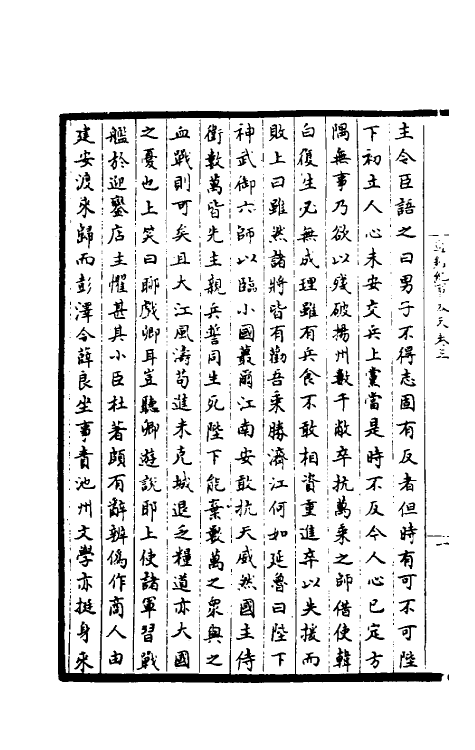 主令臣語之曰男子不得志固有反者但時有可不可陛
下初立人心未安交兵上黨當是時不反今人心已定方
隅無事乃欲以殘破揚州數千敝卒抗萬乘之師借使韓
白復生必無成理雖有兵食不敢相資重進卒以失援而
敗上曰雖然諸將皆有勸吾乘勝濟江何如延魯曰陛下
神武御六師以臨小國蕞爾江南安敢抗天威然國主侍
衛數萬皆先主親兵誓同生死陛下能棄數萬之衆與之
血戰則可矣且大江風濤苟進未克城退乏糧道亦大國
之憂也上笑曰聊戲卿耳豈聽卿遊說耶上使諸軍習戰
艦於迎鑾店主懼甚其小臣杜著頗有辭辨偽作商人由
建安渡來歸而彭澤令薛良坐事責池州文學亦挺身來